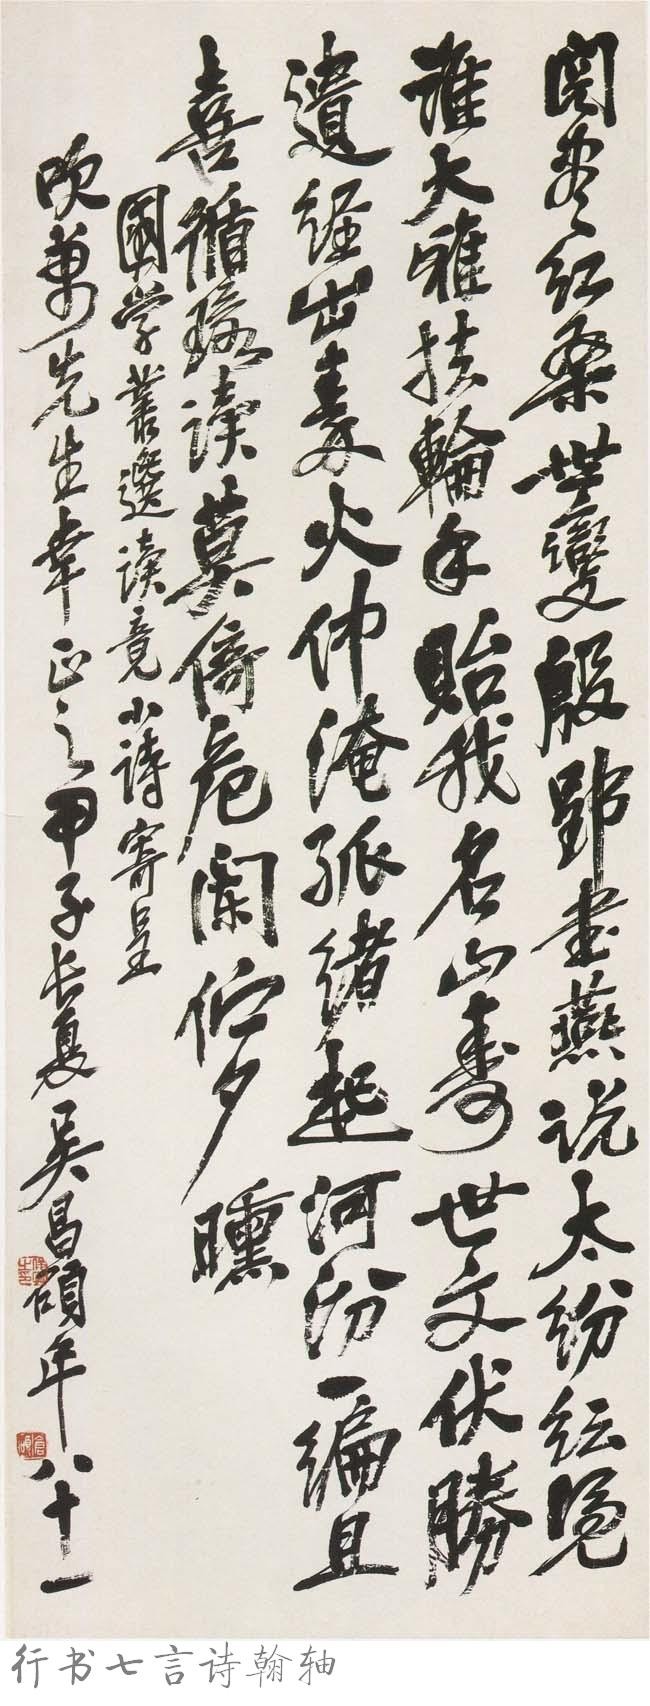 閱盡紅桑世變殷郢書燕说太紛紜凴
誰大雅扶輪手貽我名山壽世文伏勝
遺經出秦火仲淹孤緒起河汾一編且
喜循環讀莫倚危闌佇夕曛
國学叢選讀竟小詩寄呈
吹萬先生幸正之甲子长夏吴昌碩年八十一
行书七言诗翰轴